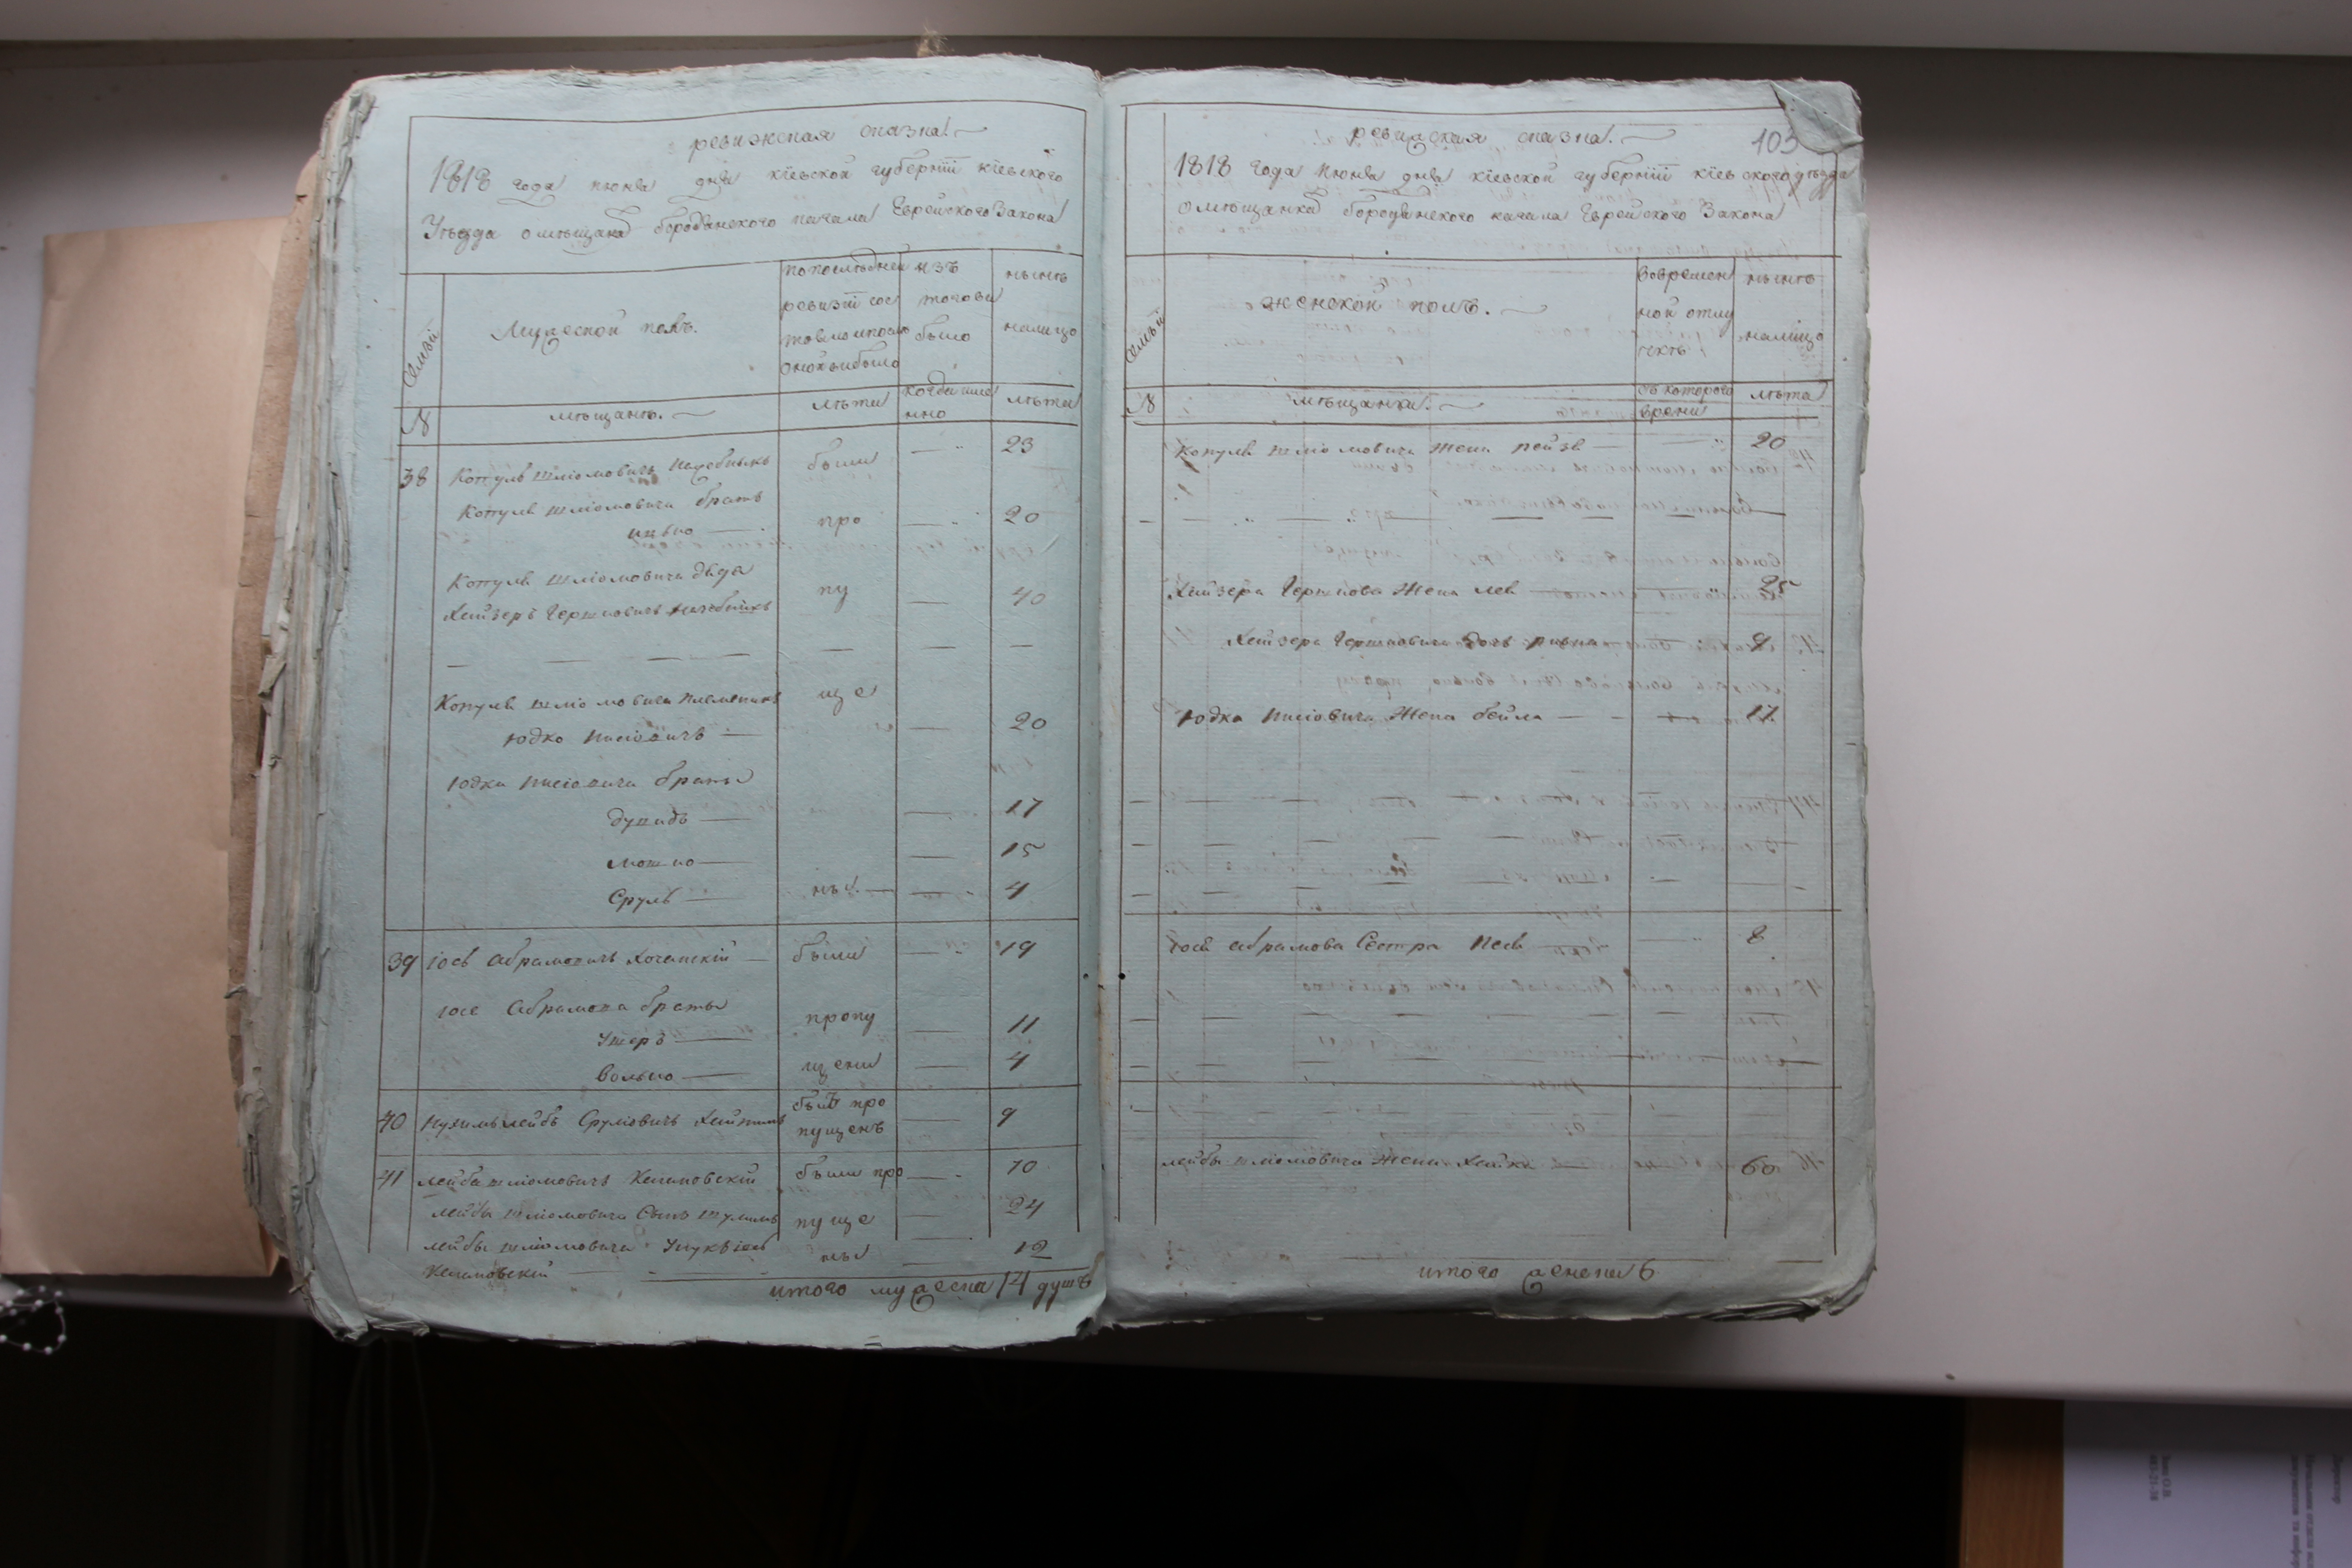 ревижская сказка
1818 года июня дня киевской губернїи киевского
Уѣзда омѣщанахъ бородянского кагала Еврейского Закона
семьи
Мужеской полъ.
попоследней
ревизїи сос
тояло ипосле
оной выбыло
изъ
того
было
нынѣ
налицо
№
мѣщанѣ.
лѣта
когда име
нно
лѣта
38
Копуль шліомовичъ
были
23
Копуля шліомовича братъ
про
20
Копуля шліомовича дядя
пу
Хейзеръ Гершковичъ
40
Копуля шліомовича племяникъ
ще
Юдко
20
Юдки братья
Дувидъ
17
Мошко
15
Сруль
ны
4
39
Іось Абрамовичъ
были
19
Іося Абрамова братья
пропу
Ушеръ
11
Волько
щены
4
40
Нухимълейбъ Сруліовичъ
былъ про
пущенъ
9
41
Лейба шліомовичъ
были про
70
лейбы шліомовича Сынъ шулимъ
пуще
24
лейбы шліомовича Унукъ
ны
12
итого мужеска 14 душъ
103
ревижская сказка.
1818 года Июня дня киевской губернїи киевского уѣзда
омѣщанкахъ бородянского кагала Еврейского Закона
семьи
женской полъ.
вовремен
ной отлу
чкѣ
нынѣ
налицо
№
мѣщанки.
съ которого
времени
лѣта
Копуля шліомовича жена Рейзя
20
Хейзера Гершкова жена лея
25
Хейзера Гершковича дочь ривка
9
Юдка жена бейла
17
Іося Абрамова Сестра Песя
8
лейбы шліомовича жена Хайка
60
итого женска 6